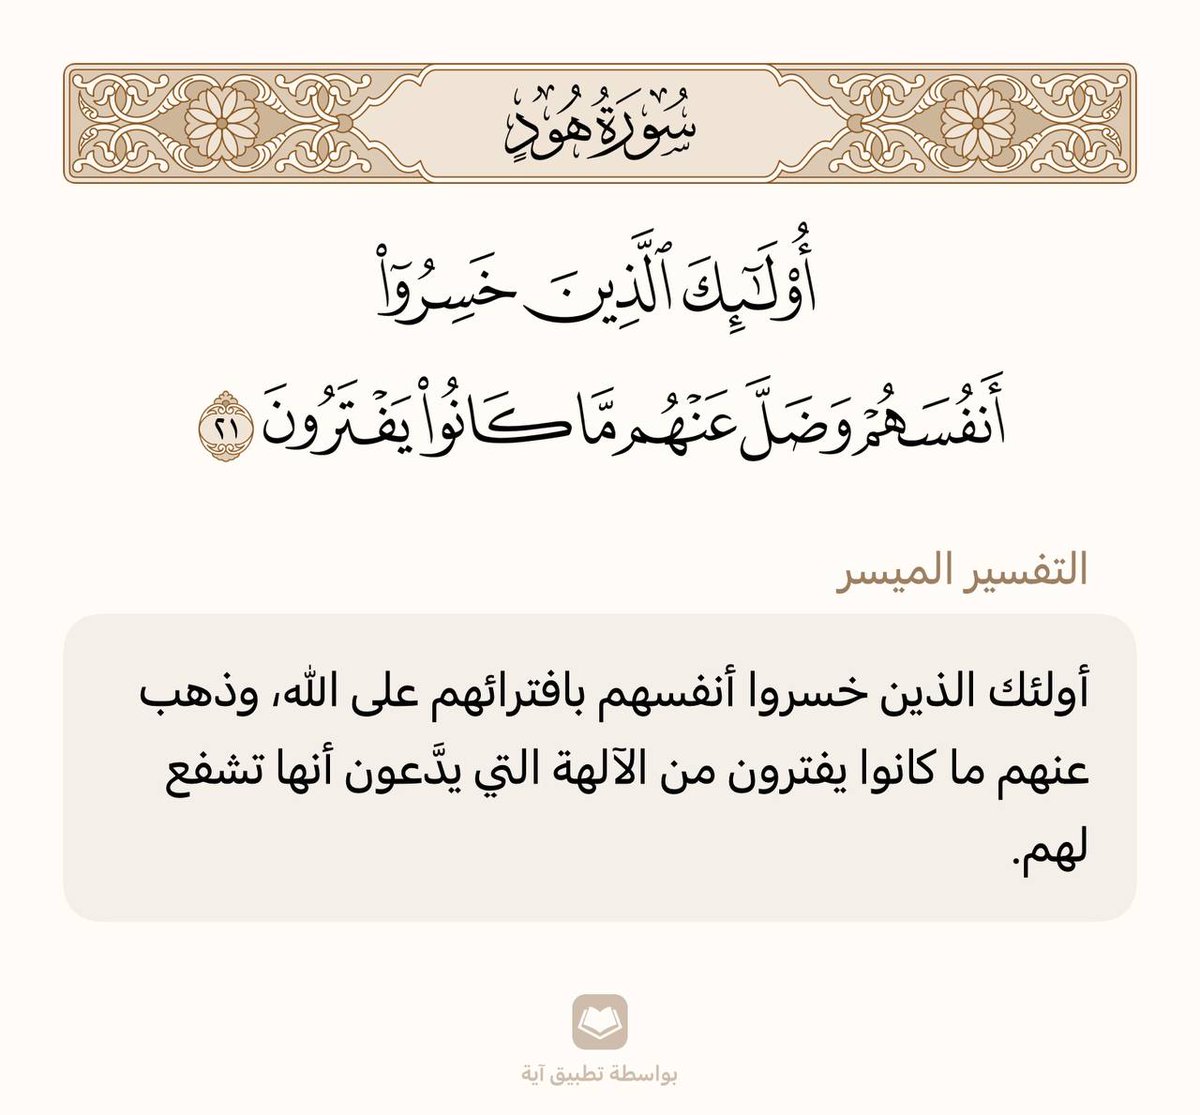 سُورَةُ هُودٍ
أُوْلَـٰٓئِكَ ٱلَّذِينَ خَسِرُوٓاْ
أَنفُسَهُمۡ وَضَلَّ عَنۡهُم مَّا كَانُواْ يَفۡتَرُونَ ٢١
التفسير الميسر
أولئك الذين خسروا أنفسهم بافترائهم على الله، وذهب
عنهم ما كانوا يفترون من الآلهة التي يدَّعون أنها تشفع
لهم.
بواسطة تطبيق آية